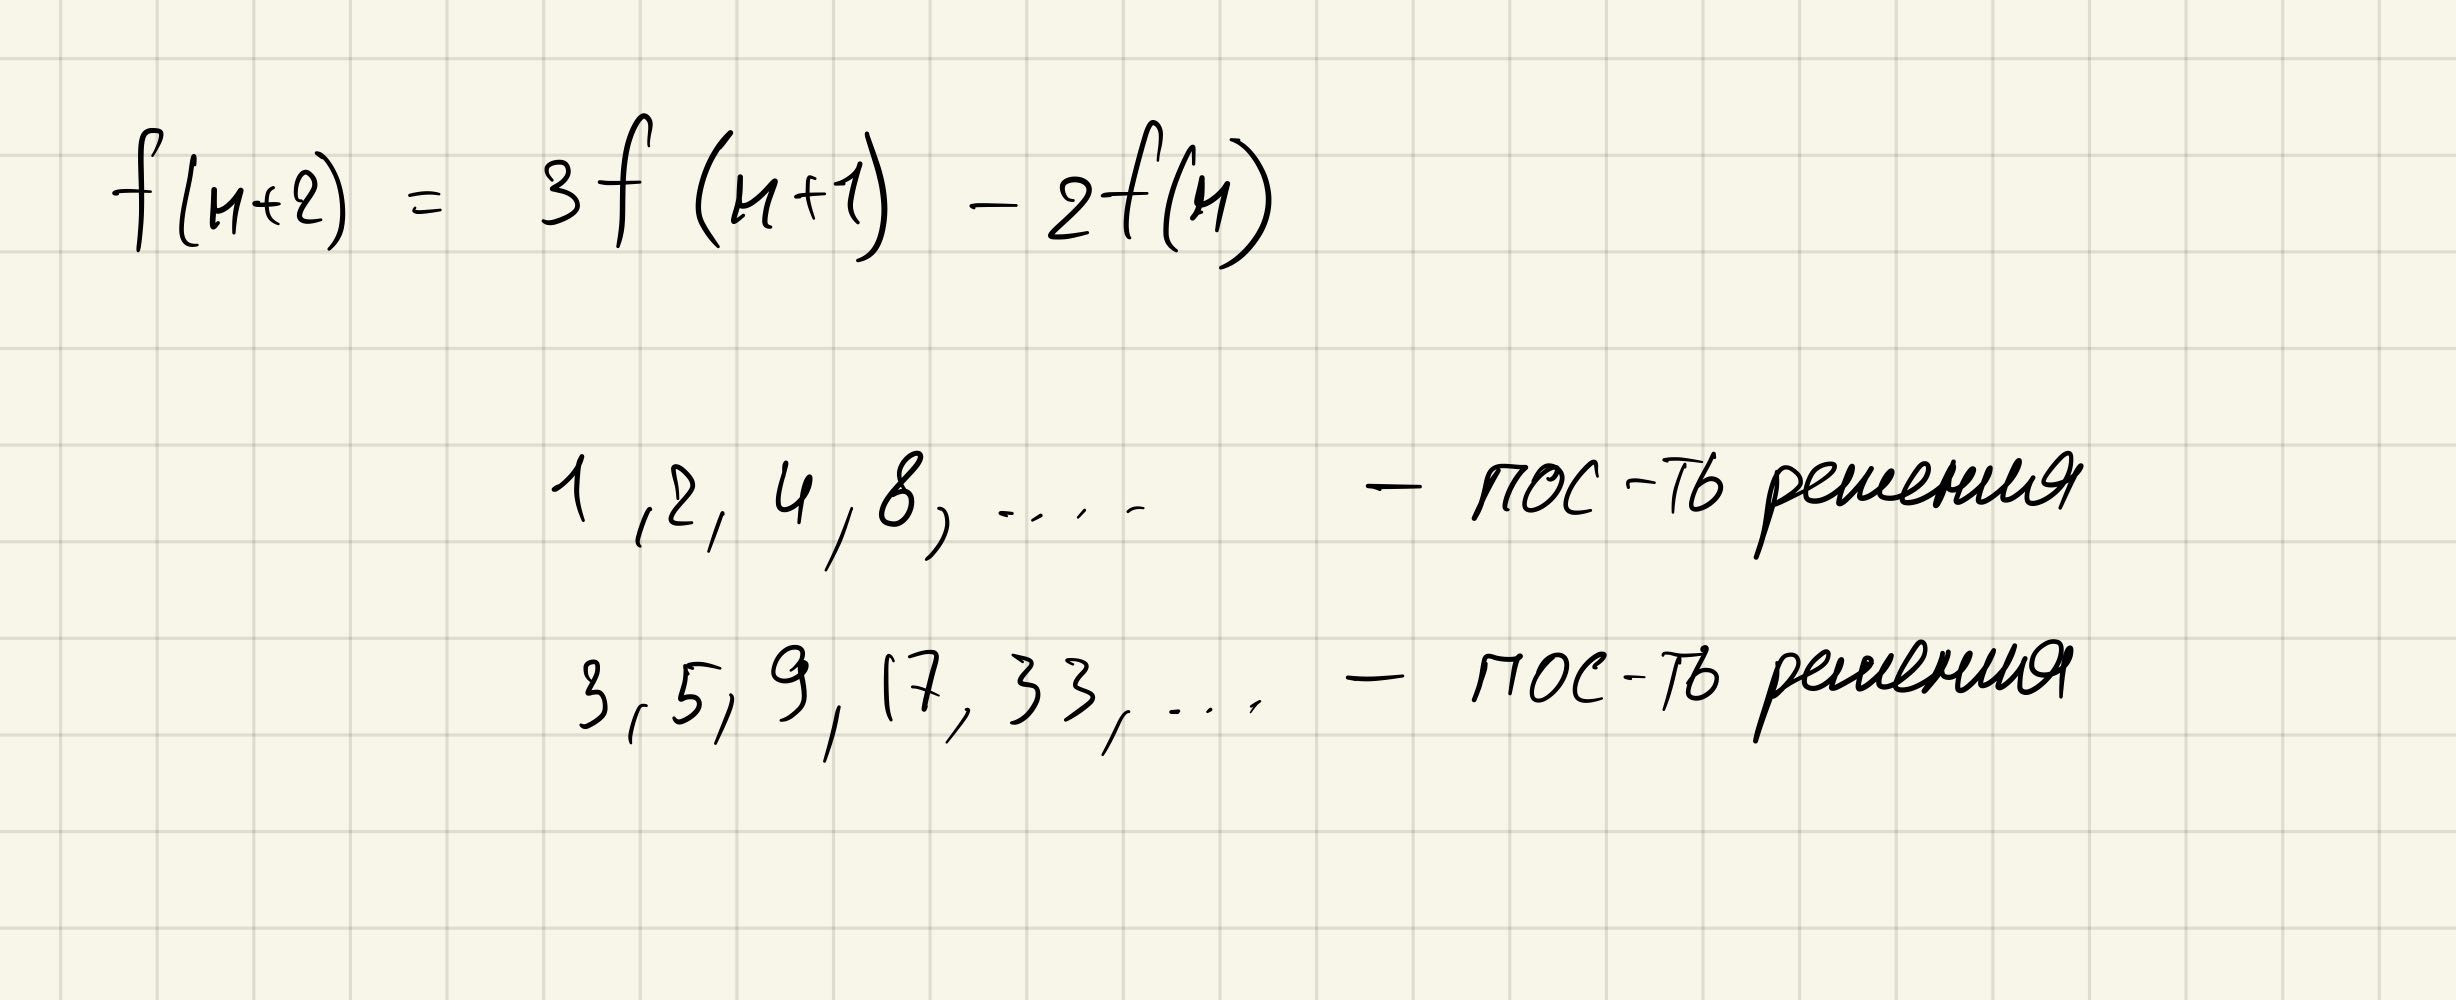 f(n+2) = 3f(n+1) - 2f(n)
1, 2, 4, 8, .... - пос-ть решения
3, 5, 9, 17, 33, ... - пос-ть решения